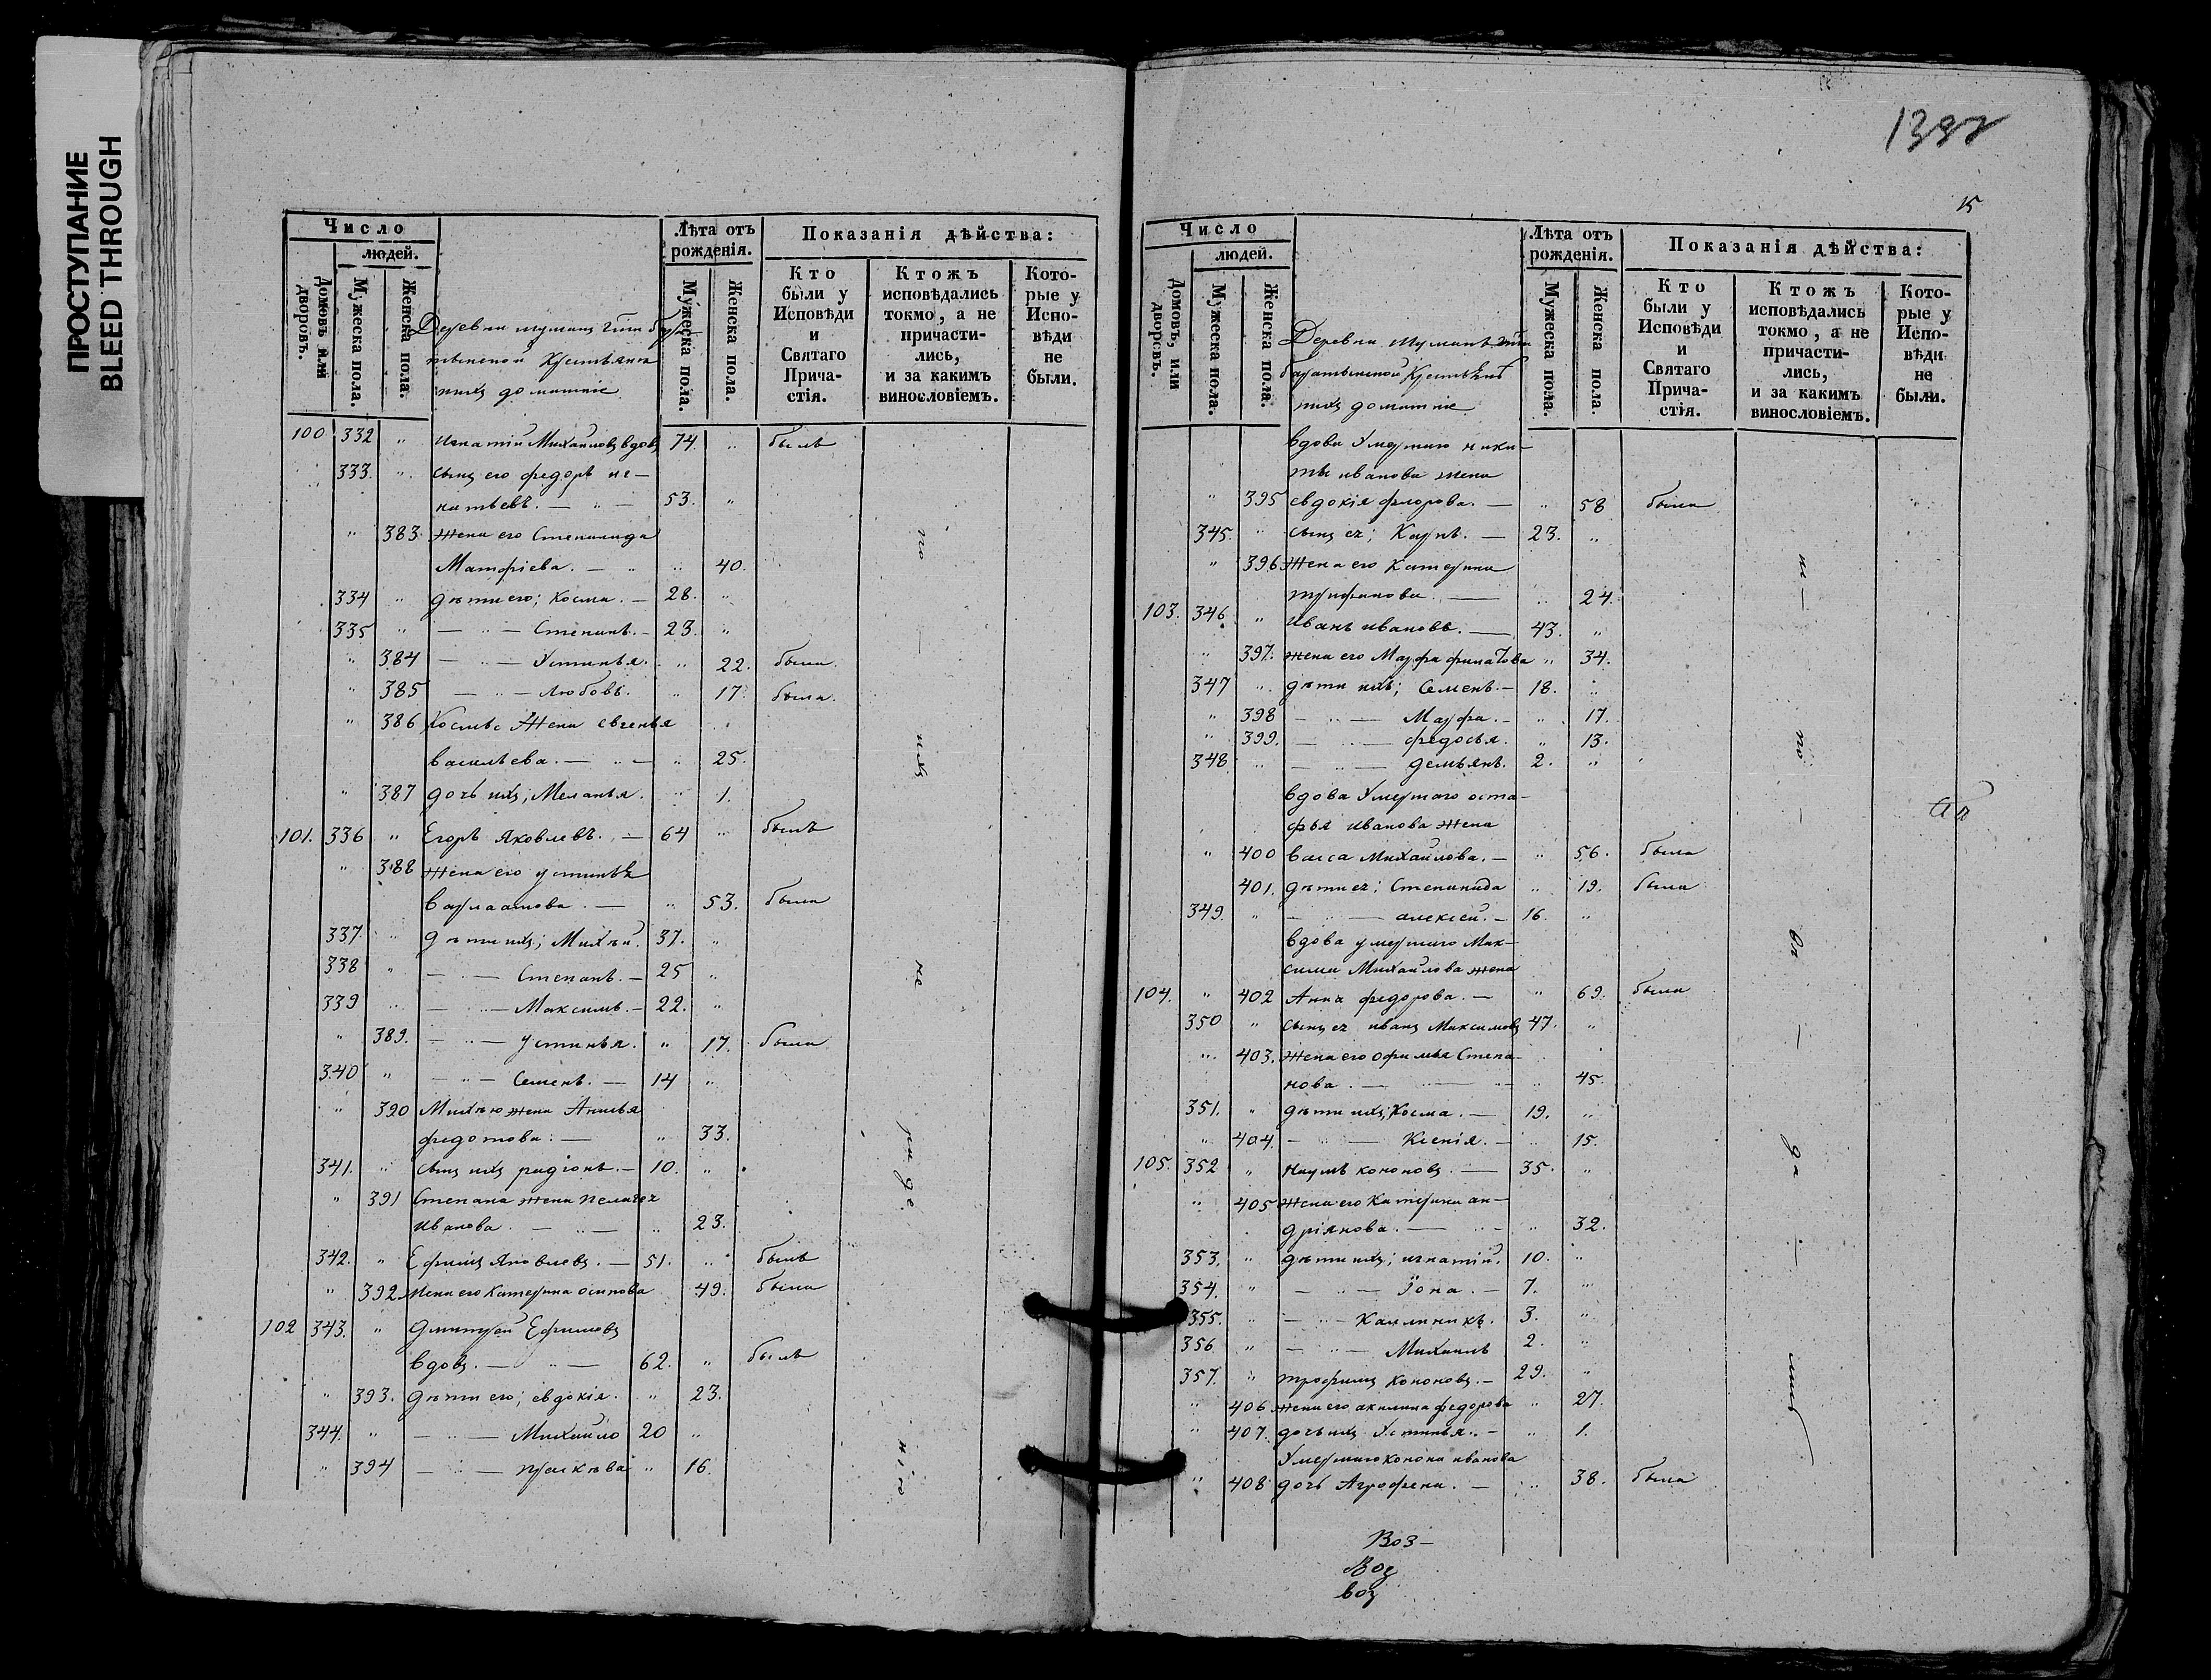 ПРОСТУПАНИЕ
BLEED THROUGH
Число
людей.
Домовъ или дворовъ.
Мужеска пола.
Женска пола.
Деревни
крестьяне и
ихъ домашніе
Лѣта отъ рожденія.
Мужеска пола.
Женска пола.
Показанія дѣйства:
Кто были у Исповѣди и Святаго Прича-стія.
Ктожъ исповѣдались токмо, а не причасти-лись, и за какимъ винословіемъ.
Кото-рые у Испо-вѣди не были.
100 332 " игнатій Михайловъ вдовъ 74. " былъ
333. " сынъ его федоръ иг-
натьевъ. — " — 53. "
" 383. жена его Степанида
Матфіева. — " " 40.
334 " дѣти его; косма. — 28. "
335 " — " — Степанъ. — 23. "
" 384 — " — Устинья. " 22. была
" 385 — " — любовь. " 17. была.
" 386 Космы жена евгенья
васильева. — " — " 25.
" 387 дочь ихъ; Меланья. " 1.
101. 336 " Егоръ Яковлевъ. — 64 " былъ
" 388 жена его устинья
варлаамова. — " 53. была
337. " дѣти ихъ; Михѣй. 37. "
338 " — " — Степанъ. — 25 "
339 " — " — Максимъ. — 22. "
" 389. — " — устинья. " 17. была
340 " — " — Семенъ. — 14 "
" 390 Михѣю жена Анисья
федотова: — " 33.
341. " сынъ ихъ радіонъ. — 10. "
" 391 Степана жена пелагея
иванова. — " — " 23.
342. " Ефимъ Яковлевъ. — 51. " былъ
" 392 жена его катерина осипова 49. была
102 343. " дмитрей Ефимовъ
вдовъ. — " — 62. " былъ
" 393. дѣти его; евдокія. " 23.
344. " — " — Михайло 20 "
" 394 — " — прасковья " 16.
по
—
ихъ
не
ра де
ніго
1392
15
Число
людей.
Домовъ, или дворовъ.
Мужеска пола.
Женска пола.
Деревни
крестьяне
ихъ домашніе
Лѣта отъ рожденія.
Мужеска пола.
Женска пола.
Показанія дѣйства:
Кто были у Исповѣди и Святаго Прича-стія.
Ктожъ исповѣдались токмо, а не причасти-лись, и за какимъ винословіемъ.
Кото-рые у Испо-вѣди не были.
вдова умершаго ники-
ты иванова жена
" 395 евдокія флорова. — " 58 была
345. " сынъ ея; Карпъ. — 23. "
" 396 жена его катерина
трифанова. — " 24.
103. 346. " иванъ ивановъ. — 43. "
" 397. жена его Марфа филатова " 34.
347 " дѣти ихъ; Семенъ. — 18. "
" 398 — " — Марфа. — " 17.
" 399. — " — федосья. " 13.
348 " — " — демьянъ. 2. "
вдова умершаго оста-
фья иванова жена
" 400 васса михайлова. — " 56. была
401. дѣти ея; Степанида " 19. была
349. " — " — алексей. — 16. "
вдова умершаго Мак-
сима Михайлова жена
104. " 402 Анна федорова. — " 69. была
350 " сынъ ея иванъ Максимовъ 47. "
" 403. жена его офимья Степа-
нова. — " 45.
351. " дѣти ихъ; косма. — 19. "
" 404. — " — ксенія. — " 15.
105. 352 " наумъ кононовъ. — 35. "
" 405 жена его катерина ан-
дріянова. — " — " 32.
353. " дѣти ихъ; игнатій. 10. "
354. " — " — Іона. — 7. "
355. " — " — Каллиникъ. 3. "
356 " — " — Михаилъ 2. "
357. " трофимъ кононовъ. — 29. "
" 406 жена его акилина федорова " 27.
" 407. дочь ихъ Устинья. — " 1.
Умершаго конона иванова
" 408 дочь Агрофена. — " 38. была
Воз-
Воз
воз